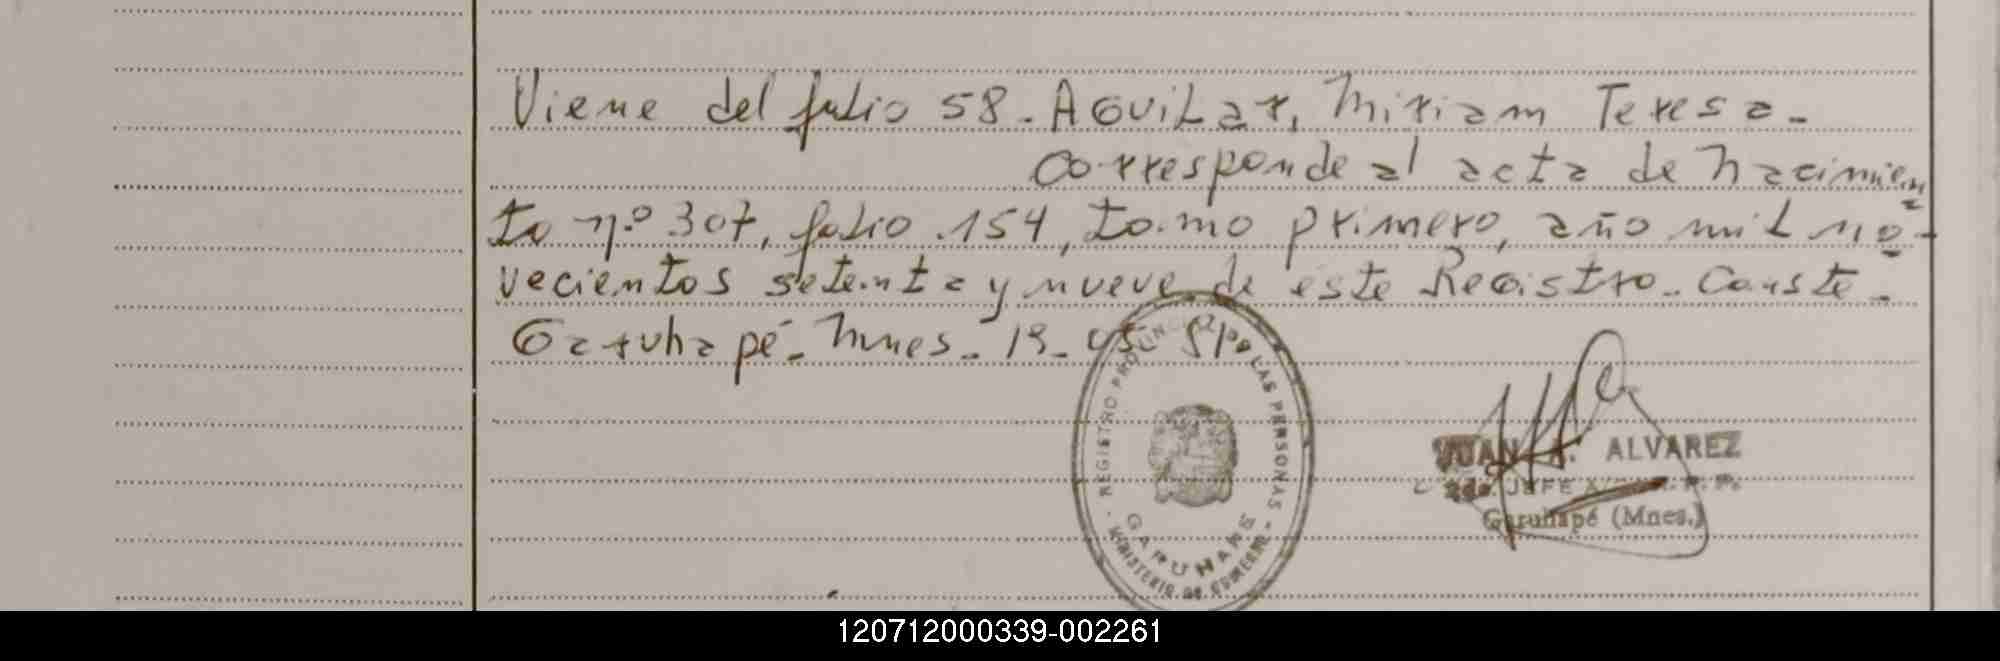 Viene del folio 58. AGUiLar, Miriam Teresa.
Corresponde al acta de Nacimien
to n.º 307, folio 154, tomo primero, año mil no-
vecientos setenta y nueve de este Registro. Conste.
Garuhapé. Mnes.
REGISTRO PROVINCIAL DE LAS PERSONAS
GARUHAPE
MINISTERIO DE GOBIERNO
JUAN A. ALVAREZ
2do. JEFE
Garuhapé (Mnes.)
120712000339-002261